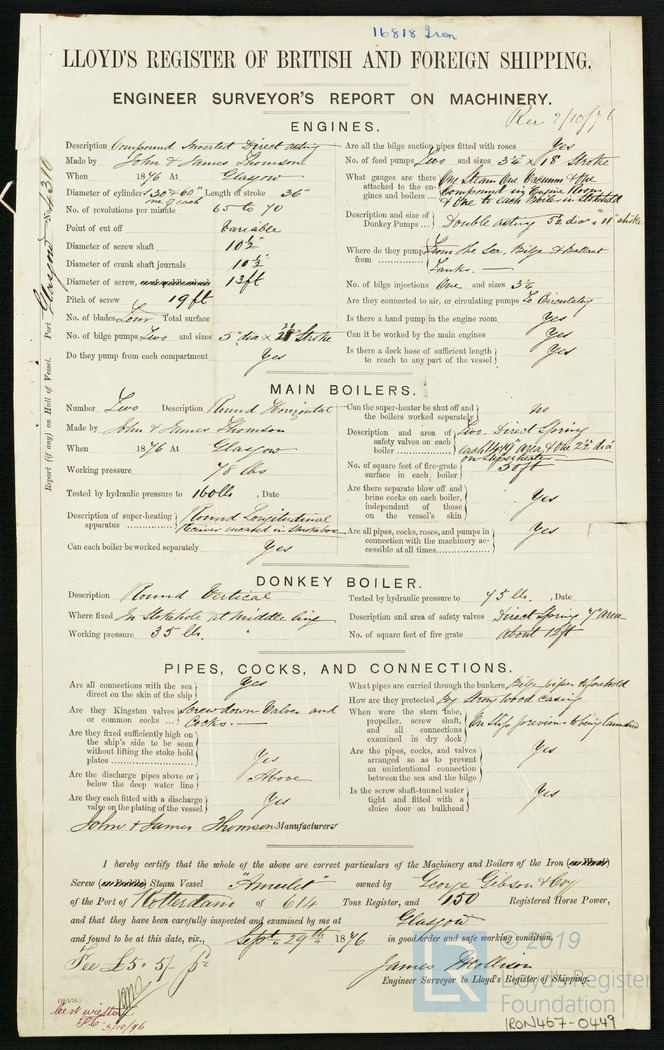 16818 Iron
LLOYD'S REGISTER OF BRITISH AND FOREIGN SHIPPING.
ENGINEER SURVEYOR'S REPORT ON MACHINERY.
Rec 2/10/76
Report (if any) on Hull of Vessel. Port Glasgow No. 4310
ENGINES.
Description Compound Inverted Direct acting
Made by John & James Thomson
When 1876 At Glasgow
Diameter of cylinders 30" & 60" Length of stroke 36"
one of each
No. of revolutions per minute 65 to 70
Point of cut off Variable
Diameter of screw shaft 10½
Diameter of crank shaft journals 10½
Diameter of screw, 13 ft
Pitch of screw 19 ft
No. of blades Four Total surface
No. of bilge pumps Two and sizes 5" dia x Stroke
Do they pump from each compartment Yes
Are all the bilge suction pipes fitted with roses Yes
No. of feed pumps Two and sizes x 18 Stroke
What gauges are there attached to the engines and boilers One Steam One Vacuum & One
Compound in Engine Room
& One to each Boiler in Stokehold
Description and size of Donkey Pumps Double acting 5½ dia x 11 stroke
Where do they pump from From the Sea, Bilge & Ballast
Tanks.
No. of bilge injections One and sizes 3½
Are they connected to air, or circulating pumps To Circulating
Is there a hand pump in the engine room Yes
Can it be worked by the main engines Yes
Is there a deck hose of sufficient length to reach to any part of the vessel Yes
MAIN BOILERS.
Number Two Description Round Horizontal
Made by John & James Thomson
When 1876 At Glasgow
Working pressure 78 lbs
Tested by hydraulic pressure to 160 lbs, Date
Description of super-heating apparatus Round Longitudinal
Receiver encased in Smokebox
Can each boiler be worked separately Yes
Can the super-heater be shut off and the boilers worked separately no
Description and area of safety valves on each boiler Two. Direct Spring
each area & one 2½ dia
on Superheater
No. of square feet of fire-grate surface in each boiler 50 ft
Are there separate blow off and brine cocks on each boiler, independent of those on the vessel's skin Yes
Are all pipes, cocks, roses, and pumps in connection with the machinery accessible at all times Yes
DONKEY BOILER.
Description Round Vertical
Where fixed In Stokehole at middle line
Working pressure 35 lbs.
Tested by hydraulic pressure to 75 lbs., Date
Description and area of safety valves Direct Spring 7" area
No. of square feet of fire grate about 12 ft
PIPES, COCKS, AND CONNECTIONS.
Are all connections with the sea direct on the skin of the ship Yes
Are they Kingston valves or common cocks Screw down Valves and
Cocks.
Are they fixed sufficiently high on the ship's side to be seen without lifting the stoke hold plates Yes
Are the discharge pipes above or below the deep water line Above
Are they each fitted with a discharge valve on the plating of the vessel Yes
What pipes are carried through the bunkers, Bilge pipes to forehold
How are they protected By Strong wood casing
When were the stern tube, propeller, screw shaft, and all connections examined in dry dock On Slip previous to being launched
Are the pipes, cocks, and valves arranged so as to prevent an unintentional connection between the sea and the bilge Yes
Is the screw shaft-tunnel water tight and fitted with a sluice door on bulkhead Yes
John & James Thomson Manufacturers
I hereby certify that the whole of the above are correct particulars of the Machinery and Boilers of the Iron (or Wood)
Screw (or Paddle) Steam Vessel "Amulet" owned by George Gibson & Coy
of the Port of Rotterdam of 614 Tons Register, and 150 Registered Horse Power,
and that they have been carefully inspected and examined by me at Glasgow
and found to be at this date, viz., Sept. 29th 1876 in good order and safe working condition.
Fee £5. 5/-
James Mollison
Engineer Surveyor to Lloyd's Register of Shipping.
Cert written
3/10/76
© 2019
LR
Lloyd's Register
Foundation
IRON467-0449